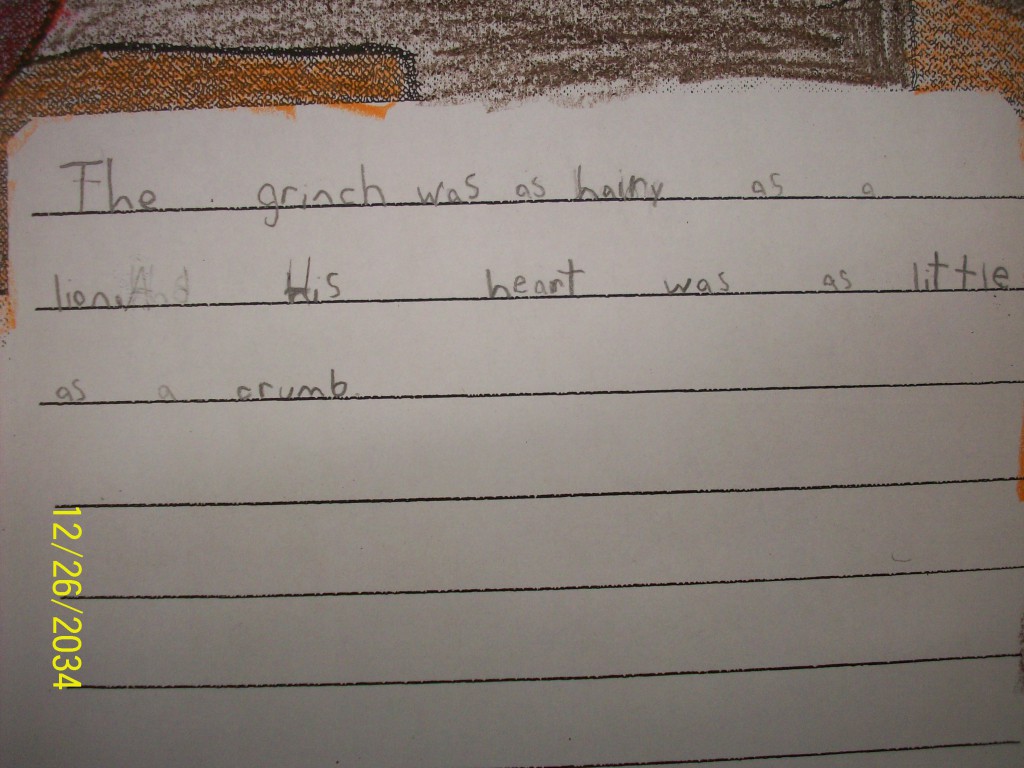 The grinch was as hairy as a
lion. And His heart was as little
as a crumb.
12/26/2034